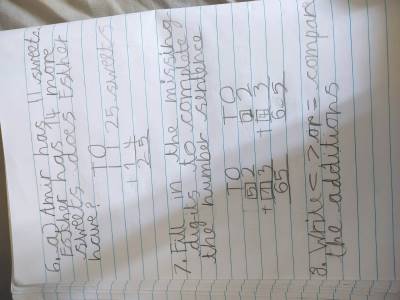 6. a) Amir has 11 sweets.
Esther has 14 more
sweets does Esther
have?
TO
25 sweets
14
25
7. Fill in the missing
digits to complete
the number sentence
TO TO
52 2
+ 3 + 3
65 65
8. Write < > or = compare
the additions